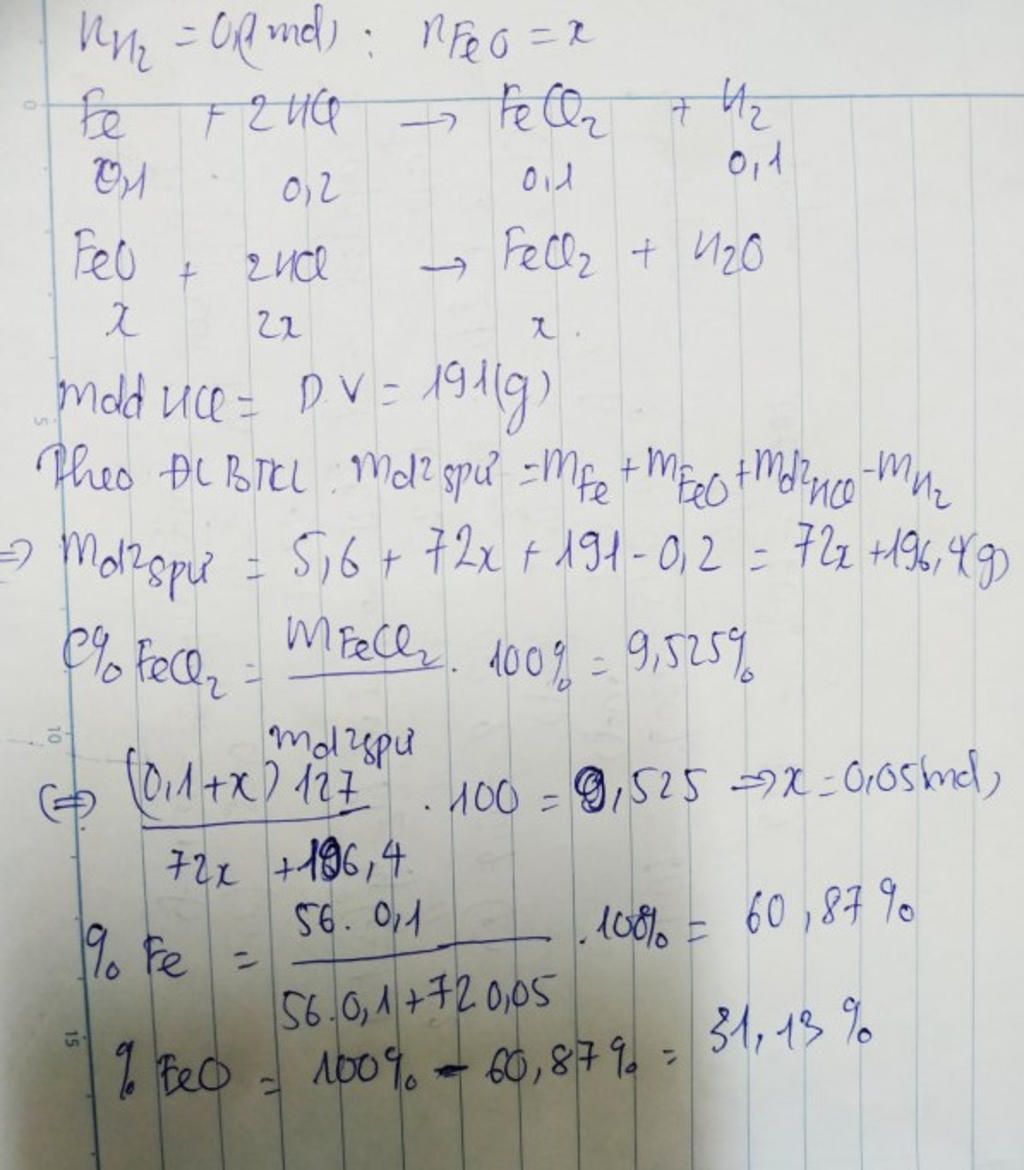 nH₂ = 0,1(mol) : nFeO = x
Fe + 2HCl → FeCl₂ + H₂
0,1 0,2 0,1 0,1
FeO + 2HCl → FeCl₂ + H₂O
x 2x x
mdd HCl = D.V = 191(g)
Theo ĐLBTKL: md²spứ = mFe + mFeO + md²HCl - mH₂
=> md²spứ = 5,6 + 72x + 191 - 0,2 = 72x + 196,4(g)
C% FeCl₂ = mFeCl₂ / md²spứ . 100% = 9,525%
(=> (0,1+x) 127 / 72x + 196,4 . 100 = 9,525 => x = 0,05(mol)
% Fe = 56. 0,1 / 56.0,1 + 72 0,05 . 100% = 60,87%
% FeO = 100% - 60,87% = 31,13%
0
5
10
15